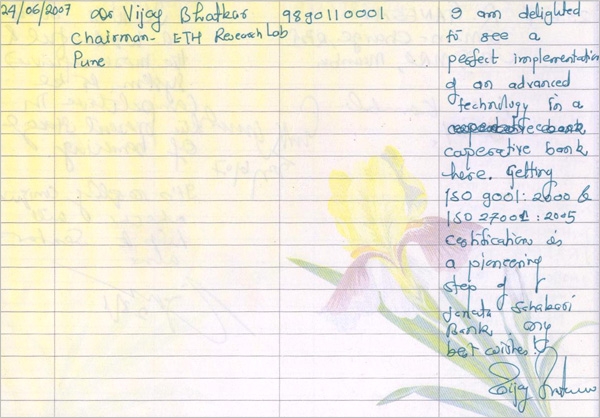 24/06/2007 Dr Vijay Bhatkar 9890110001
Chairman- ETH Research Lab
Pune
I am delighted
to see a
perfect implementation
of an advanced
technology in a
cooperative bank
here. Getting
ISO 9001:2000 &
ISO 27001:2005
certification is
a pioneering
step of
Janata Sahakari
Bank. My
best wishes!
Vijay Bhatkar